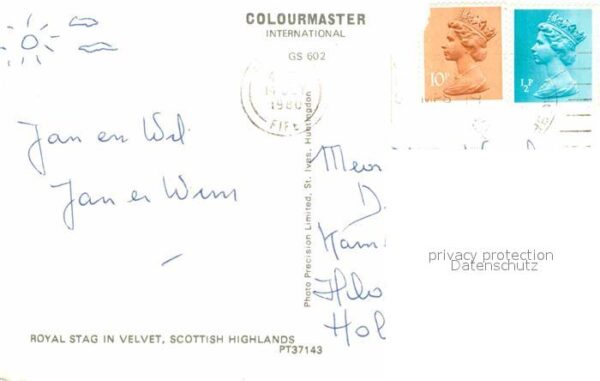 COLOURMASTER
INTERNATIONAL
GS 602
10P
½P
1980
FIFE
Jan en Wil
Jan en Wim
Photo Precision Limited, St. Ives, Huntingdon
Mevr
Kam
Hol
privacy protection
Datenschutz
ROYAL STAG IN VELVET, SCOTTISH HIGHLANDS
PT37143